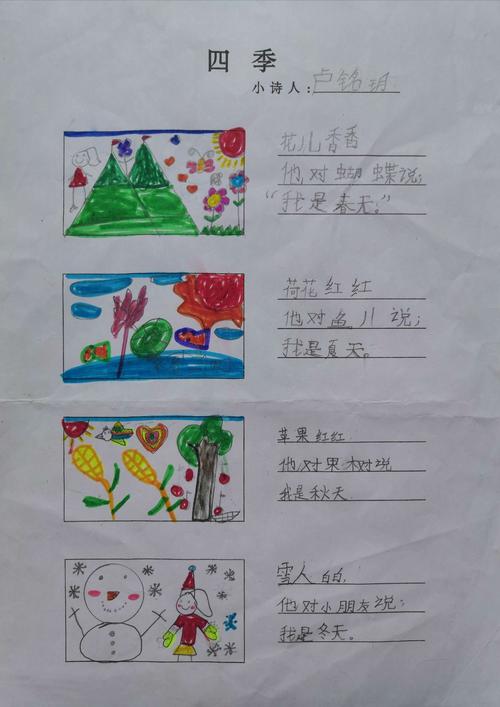 四 季
小诗人：卢铭玥
花儿香香
他对蝴蝶说：
“我是春天。”
荷花红红
他对鱼儿说；
我是夏天。
苹果红红
他对果树说
我是秋天
雪人白白
他对小朋友说：
我是冬天。